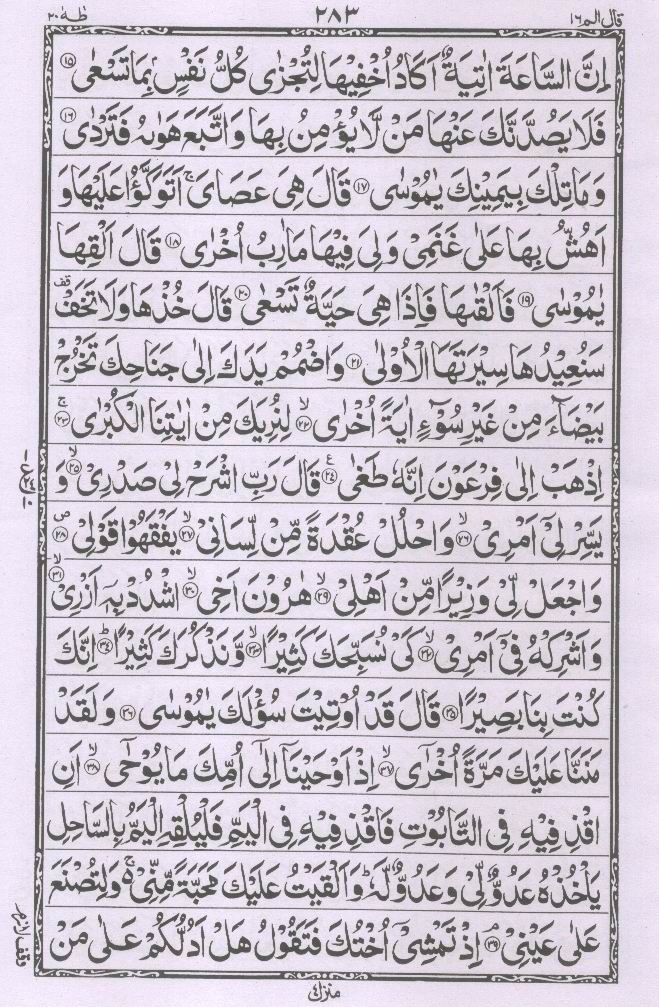 قال الم ١٦
٢٨٣
طٰهٰ ٢٠
اِنَّ السَّاعَةَ اٰتِيَةٌ اَكَادُ اُخْفِيْهَا لِتُجْزٰى كُلُّ نَفْسٍۭ بِمَا تَسْعٰى ۝۱۵
فَلَا يَصُدَّنَّكَ عَنْهَا مَنْ لَّا يُؤْمِنُ بِهَا وَاتَّبَعَ هَوٰىهُ فَتَرْدٰى ۝۱۶
وَمَا تِلْكَ بِيَمِيْنِكَ يٰمُوْسٰى ۝۱۷ قَالَ هِيَ عَصَايَ ۚ اَتَوَكَّؤُا عَلَيْهَا وَ
اَهُشُّ بِهَا عَلٰى غَنَمِيْ وَلِيَ فِيْهَا مَاٰرِبُ اُخْرٰى ۝۱۸ قَالَ اَلْقِهَا
يٰمُوْسٰى ۝۱۹ فَاَلْقٰىهَا فَاِذَا هِيَ حَيَّةٌ تَسْعٰى ۝۲۰ قَالَ خُذْهَا وَلَا تَخَفْ ۥقف
سَنُعِيْدُهَا سِيْرَتَهَا الْاُوْلٰى ۝۲۱ وَاضْمُمْ يَدَكَ اِلٰى جَنَاحِكَ تَخْرُجْ
بَيْضَآءَ مِنْ غَيْرِ سُوْٓءٍ اٰيَةً اُخْرٰى ۝۲۲ۙ لِنُرِيَكَ مِنْ اٰيٰتِنَا الْكُبْرٰى ۝۲۳ۚ
اِذْهَبْ اِلٰى فِرْعَوْنَ اِنَّهٗ طَغٰى ۝۲۴ع قَالَ رَبِّ اشْرَحْ لِيْ صَدْرِيْ ۝۲۵ۙ وَ
يَسِّرْ لِيْٓ اَمْرِيْ ۝۲۶ۙ وَاحْلُلْ عُقْدَةً مِّنْ لِّسَانِيْ ۝۲۷ۙ يَفْقَهُوْا قَوْلِيْ ۝۲۸ص
وَاجْعَلْ لِّيْ وَزِيْرًا مِّنْ اَهْلِيْ ۝۲۹ۙ هٰرُوْنَ اَخِي ۝۳۰ۙ اشْدُدْ بِهٖٓ اَزْرِيْ ۝۳۱ۙ
وَاَشْرِكْهُ فِيْٓ اَمْرِيْ ۝۳۲ۙ كَيْ نُسَبِّحَكَ كَثِيْرًا ۝۳۳ۙ وَّنَذْكُرَكَ كَثِيْرًا ۝۳۴ؕ اِنَّكَ
كُنْتَ بِنَا بَصِيْرًا ۝۳۵ قَالَ قَدْ اُوْتِيْتَ سُؤْلَكَ يٰمُوْسٰى ۝۳۶ وَلَقَدْ
مَنَنَّا عَلَيْكَ مَرَّةً اُخْرٰٓى ۝۳۷ۙ اِذْ اَوْحَيْنَآ اِلٰٓى اُمِّكَ مَا يُوْحٰٓى ۝۳۸ۙ اَنِ
اقْذِفِيْهِ فِي التَّابُوْتِ فَاقْذِفِيْهِ فِي الْيَمِّ فَلْيُلْقِهِ الْيَمُّ بِالسَّاحِلِ
يَاْخُذْهُ عَدُوٌّ لِّيْ وَعَدُوٌّ لَّهٗ ؕ وَاَلْقَيْتُ عَلَيْكَ مَحَبَّةً مِّنِّيْ ۚ۬ وَلِتُصْنَعَ
عَلٰى عَيْنِيْ ۝۳۹ۘ اِذْ تَمْشِيْٓ اُخْتُكَ فَتَقُوْلُ هَلْ اَدُلُّكُمْ عَلٰى مَنْ
منزل ٤